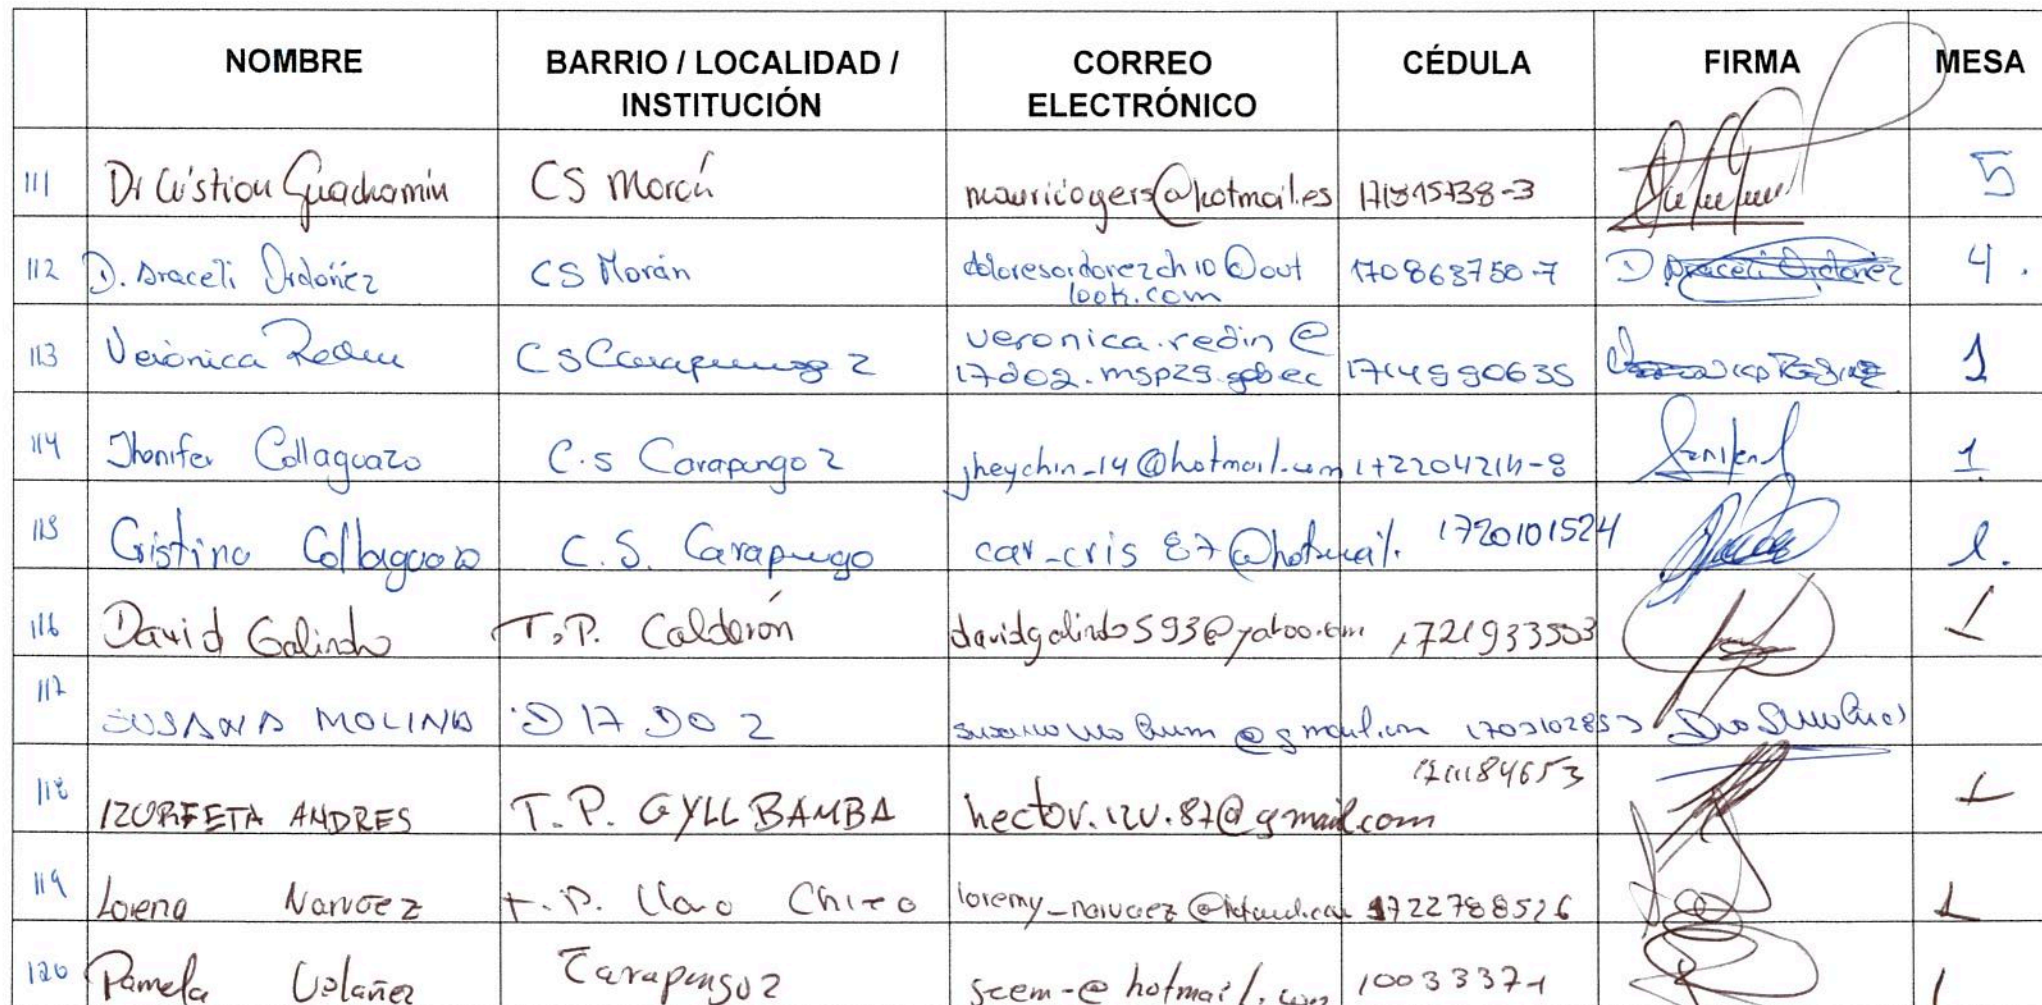 NOMBRE BARRIO / LOCALIDAD / INSTITUCIÓN CORREO ELECTRÓNICO CÉDULA FIRMA MESA
111 Dr Cristian Guachamin CS Morán mauriciogers@hotmail.es 171315738-3 5
112 D. Araceli Ordoñez CS Morán doloresordonezch10@outlook.com 170863750-7 D Araceli Ordonez 4.
113 Verónica Redin CS Carapungo 2 veronica.redin@17d02.mspz9.gob.ec 1714990635 1
114 Jhonifer Collaguazo C.S Carapungo 2 jheychin_14@hotmail.com 1.
115 Cristina Collaguazo C.S. Carapungo car_cris87@hotmail. 1720101524 1.
116 David Galindo T.P. Calderón davidgalindo593@yahoo.com 1721933503 1
117 SUSANA MOLINA D17D02
118 IZURIETA ANDRES T.P. GYLLBAMBA hector.izu.87@gmail.com 1
119 Lorena Narvaez T.P. Llano Chico loremy_narvaez 1722788526 1
120 Pamela Carapungo 2 hotmail.com 1003337-1 1